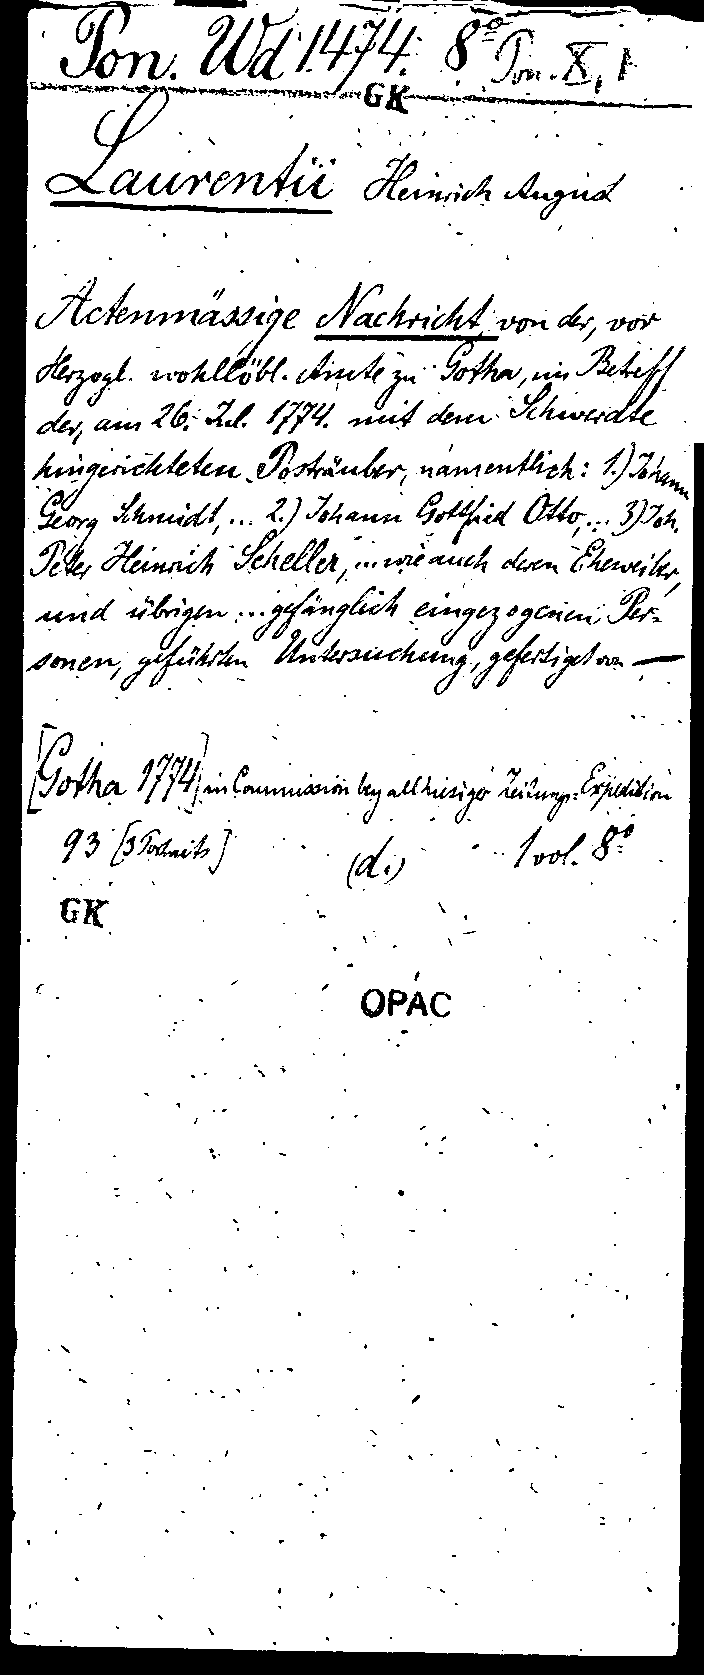 Pon. Wd 1474. 8° Pon. X, 1
GK
Laurentii Heinrich August
Actenmässige Nachricht von der, vor
Herzogl. wohllöbl. Amte zu Gotha, im Betreff
der, am 26. Jul. 1774. mit dem Schwerdte
hingerichteten Posträuber, namentlich: 1.) Johann
Georg Schmidt, ... 2.) Johann Gottfried Otto, ... 3) Joh.
Peter Heinrich Scheller, ... wie auch deren Eheweiber,
und übrigen ... gefänglich eingezogenen Per-
sonen, geführten Untersuchung, gefertiget von —
[Gotha 1774] in Commission bey allhiesiger Zeitungs-Expedition
93 [3 Portraits] (d.) 1 vol. 8°
GK
OPAC